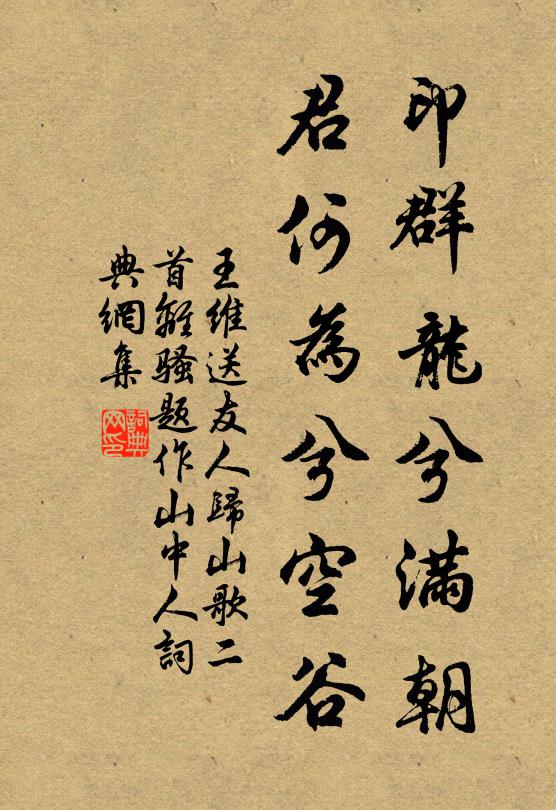 印群龍兮滿朝
君何為兮空谷
王維送友人歸山歌二
首離騷題作山中人詞
典網集
詞典
网印